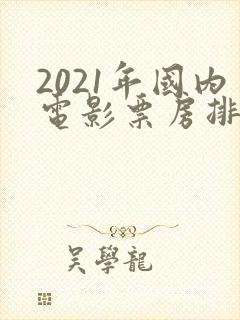 2021年國内
電影票房排
吳學龍